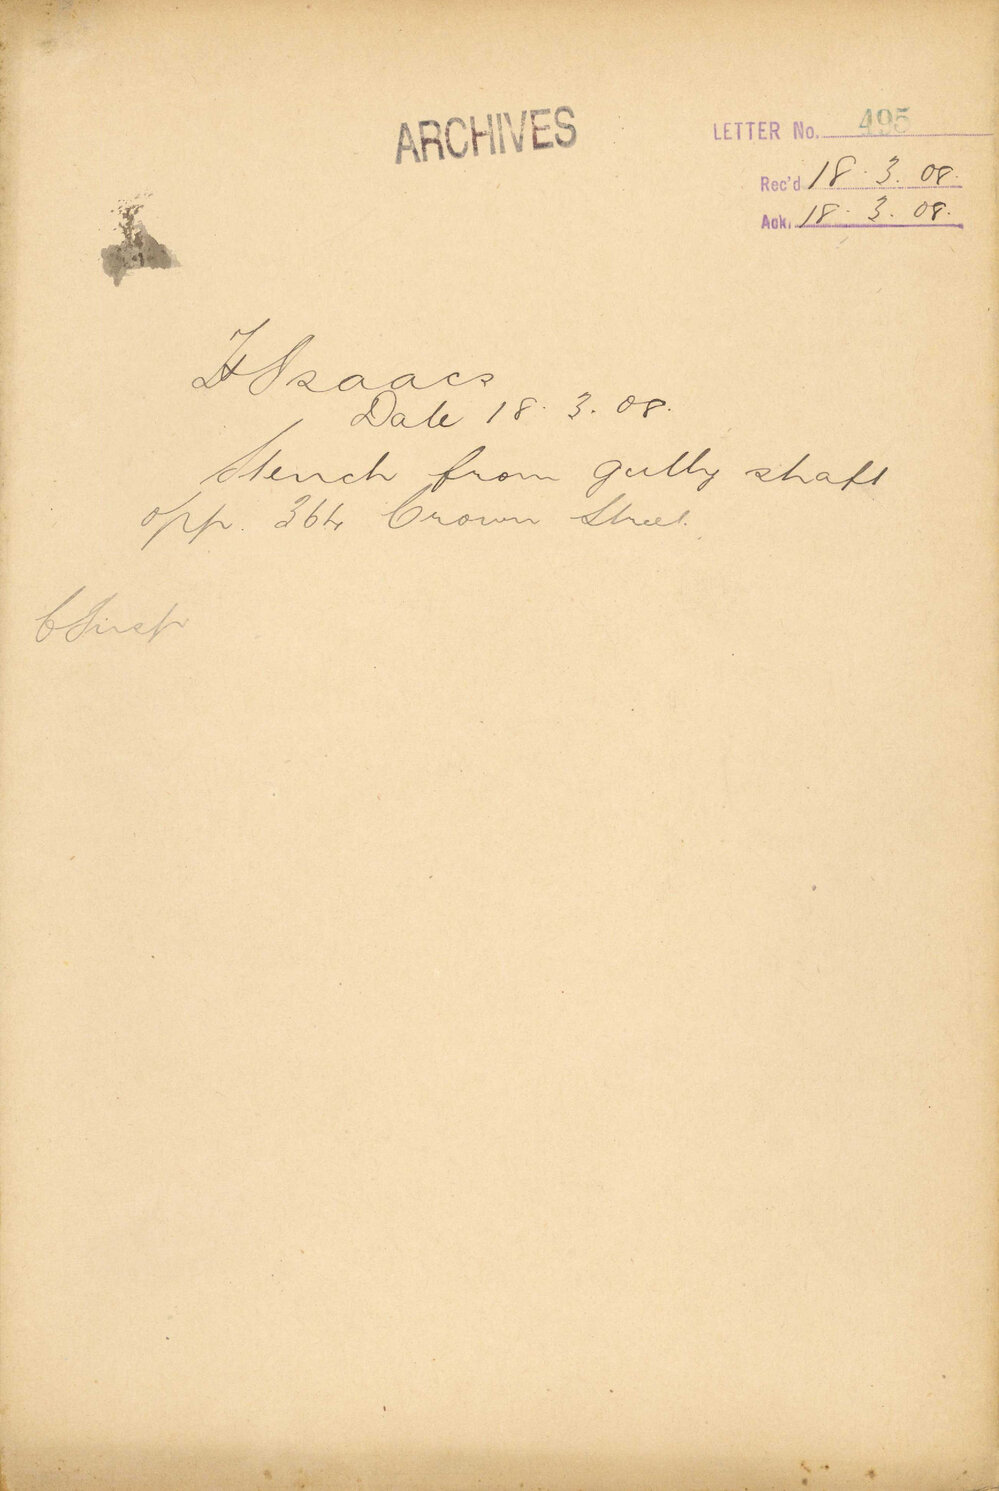 ARCHIVES
LETTER No. 495
Rec'd 18. 3. 08.
Ack. 18. 3. 08.
H Isaacs
Date 18. 3. 08.
Stench from gully shaft
opp. 364 Crown Street.
C Insp